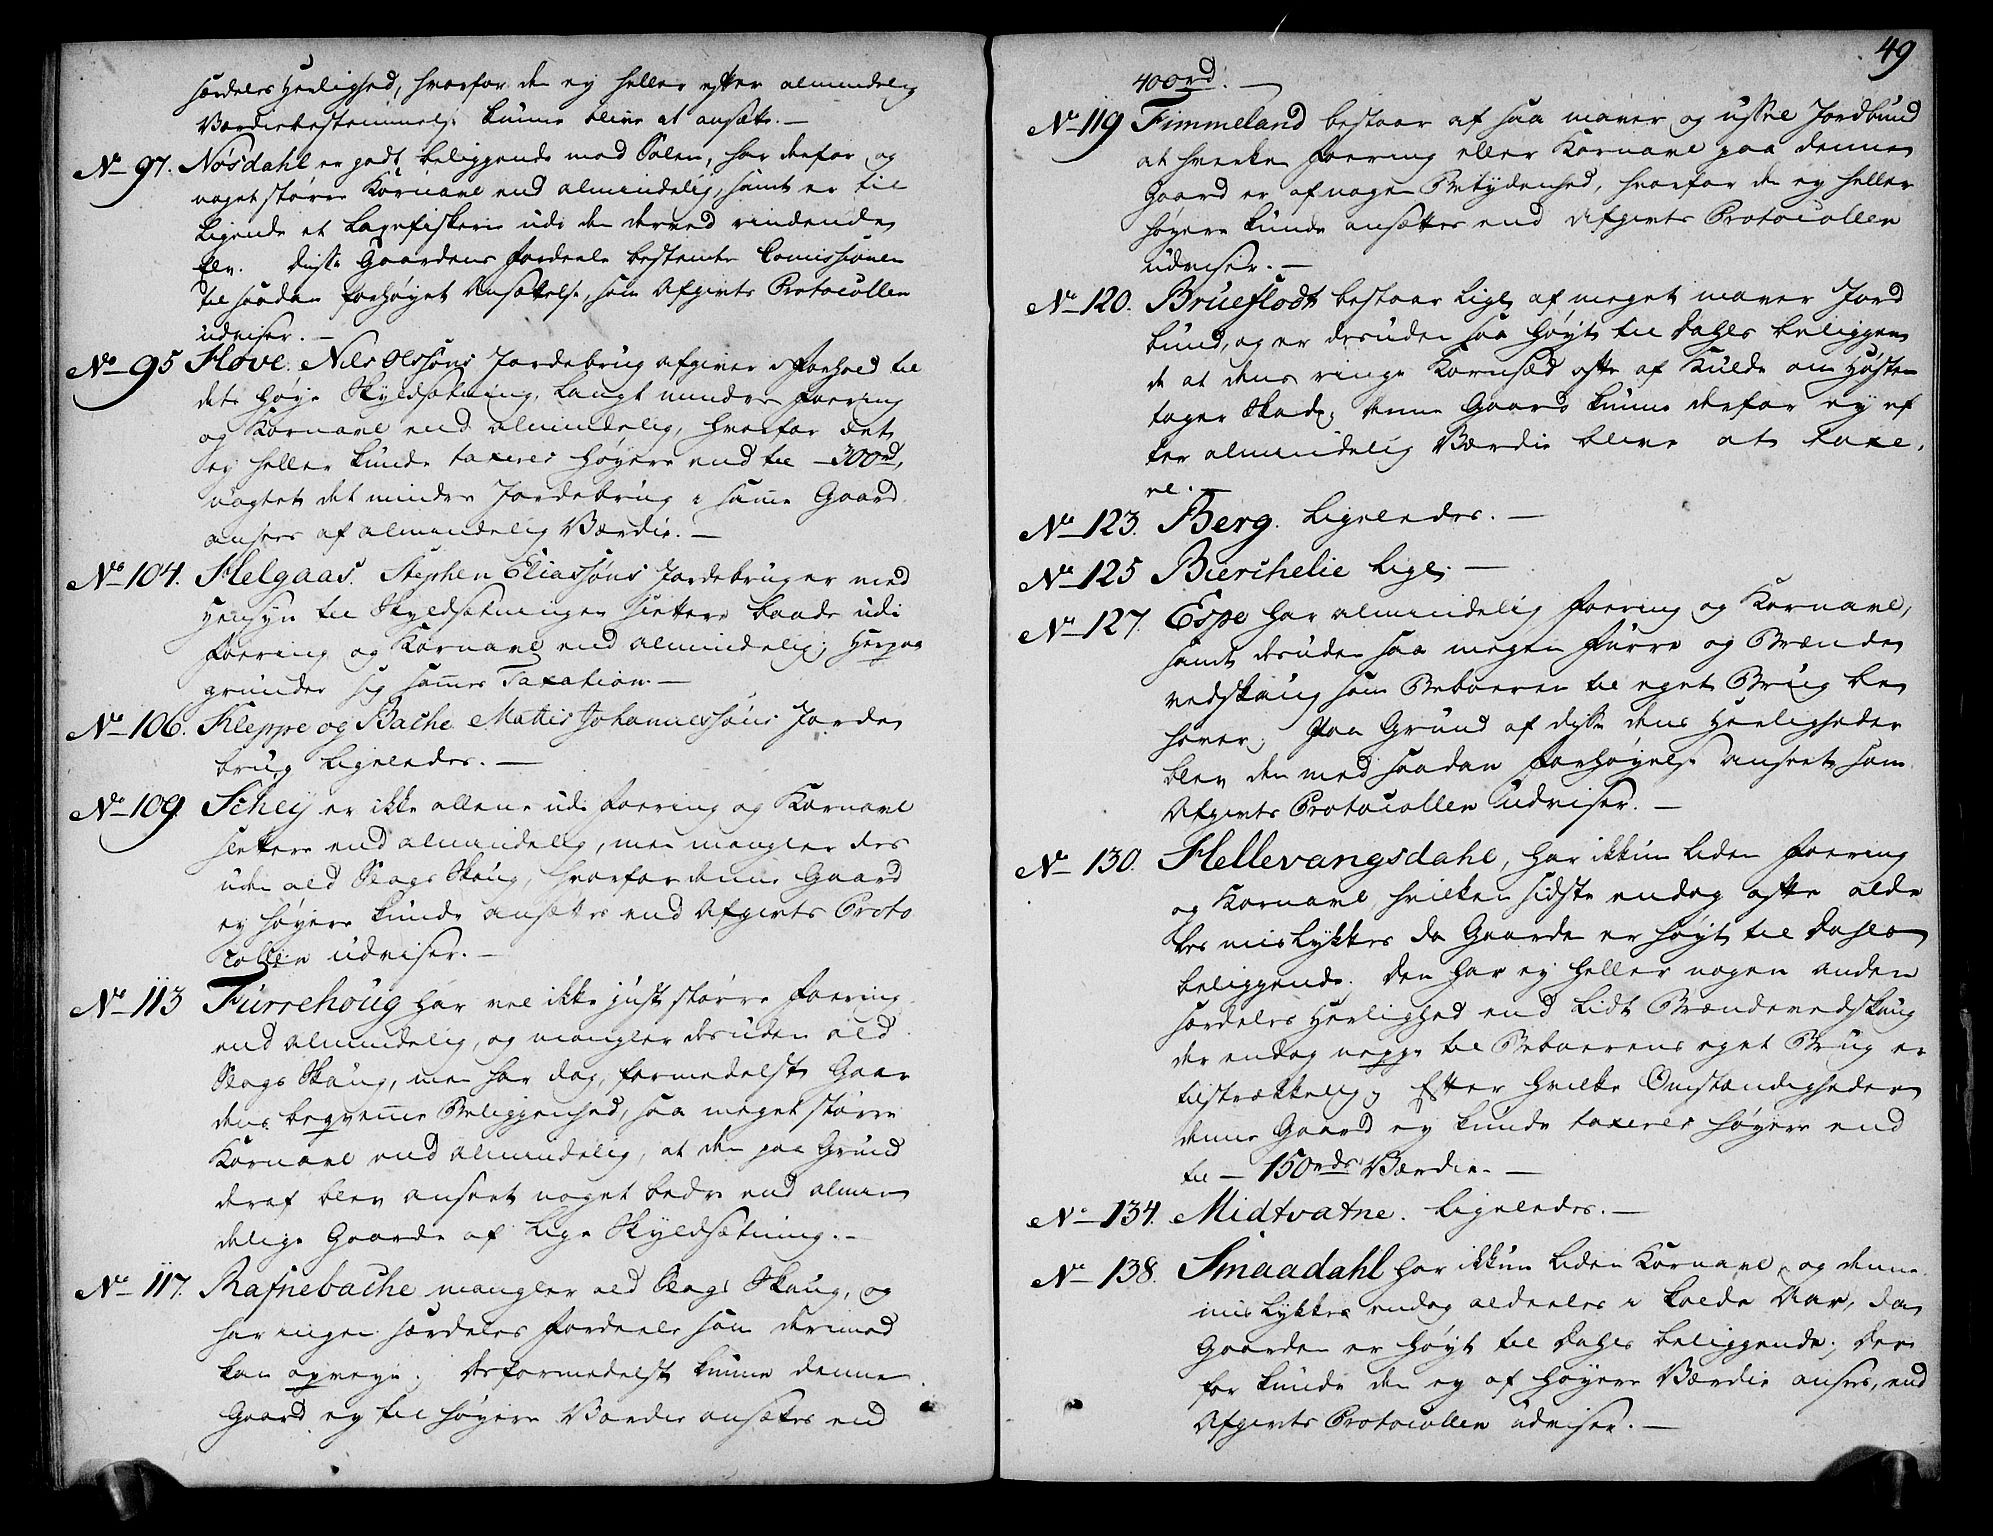 særdeles Herlighed, hvorfor den ey heller efter almindelig
Værdiebestemmelse kunne blive at ansætte. —
No 97. Nøsdahl er godt beliggende mod Solen, har derfor og
noget større Kornavl end almindelig, samt er til
liggende et Laxefiskerie udi den derved rindende
Elv. Disse Gaardens Fordeele bestemte Comissionen
til saadan forhøyet Ansættelse, som Afgivts Protocollen
udviser. —
No 95 Hove. Nils Olssøns Jordebrug afgiver i Forhold til
dets høye Skyldsætning, langt mindre Foering
og Kornavl end almindelig, hvorfor det
ey heller kunde taxeres høyere end til — 300rd,
uagtet det mindre Jordebrug i samme Gaard
ansees af almindelig Værdie. —
No 104. Helgaas. Stephen Eliassøns Jordebrug er med
Hensyn til Skyldsætningen slettere baade udi
Foering og Kornavl end almindelig; Herpaa
grunder sig sammes Taxation. —
No 106. Kleppe og Bache Mattis Johannessøns Jorde
brug ligeledes. —
No 109. Schey er ikke allene udi Foering og Kornavl
slettere end almindelig, men mangler des
uden ald Slags Skoug, hvorfor denne Gaard
ey høyere kunde ansættes end Afgivts Proto
collen udviser. —
No 113 Furrehoug har vel ikke just større Foering
end almindelig, og mangler desuden ald
Slags Skoug, men har dog, formedelst Gaar
dens beqvemme Beliggenhed, saa meget større
Kornavl end almindelig, at den paa Grund
deraf blev anseet noget bedre end almin
delige Gaarde af lige Skyldsætning. —
No 117. Rafnebache mangler ald Slags Skoug, og
har ingen særdeles Fordeele som derimod
kan opveye; Desformedelst kunne denne
Gaard ey til høyere Værdie ansættes end
49
400rd. —
No 119 Fimmeland bestaar af saa maver og ussel Jordbund
at hverken Foering eller Kornavl paa denne
Gaard er af nogen Betydenhed, hvorfor den ey heller
høyere kunde ansættes end Afgivts Protocollen
udviser. —
No 120. Brueflodt bestaar lige af meget maver Jord
bund, og er desuden saa høyt til Dahls beliggen
de at dens ringe Kornsæd ofte af Kulde om Høsten
tager Skade; denne Gaard kunne derfor ey ef
ter almindelig Værdie blive at taxe,
re. —
No 123. Berg. ligeledes. —
No 125 Bierchelie lige. —
No 127. Espe har almindelig Foering og Kornavl,
samt desuden saa megen Furre og Brænde
vedskoug som Beboeren til eget Brug be
høver; Paa Grund af disse dens Herligheder
blev den med saadan Forhøyelse anseet som
Afgivts Protocollen udviser. —
No 130. Hellevangsdahl, har ikkun liden Foering
og Kornavl, hvilken sidste endog ofte alde
les mislykkes da Gaarden er høyt til Dahls
beliggende. Den har ey heller nogen anden
særdeles Herlighed end lidt Brændevedskoug
der endog neppe til Beboerens eget Brug er
tilstrækkelig; Efter hvilke Omstændigheder
denne Gaard ey kunde taxeres høyere end
til — 150rds Værdie. —
No 134. Midtvatne. ligeledes. —
No 138. Smaadahl har ikkun liden Kornavl, og denne
mislykkes endog aldeeles i kolde Aar, da
Gaarden er høyt til Dahls beliggende; Der
for kunde den ey af høyere Værdie ansees, end
Afgivts Protocollen udviser. —